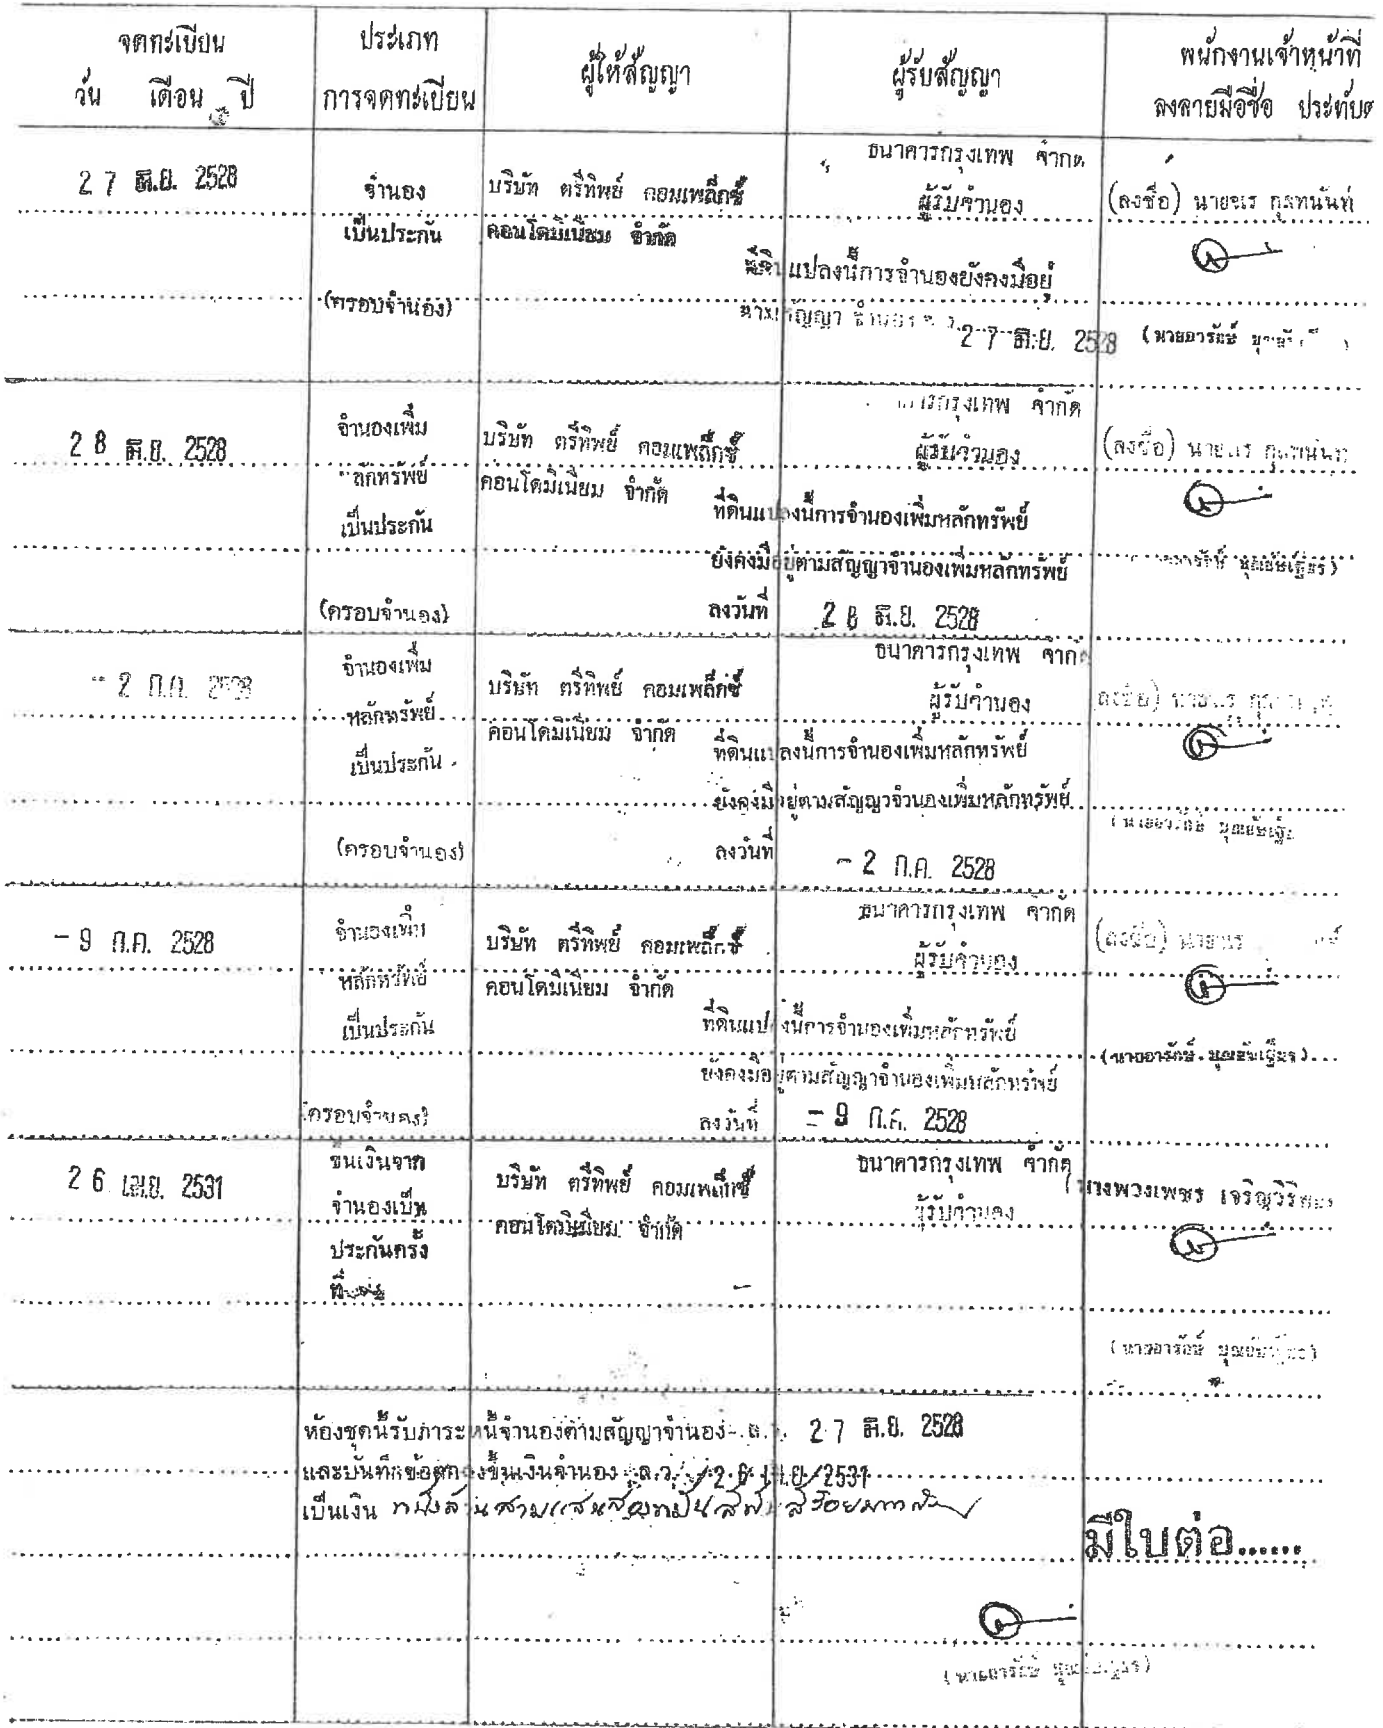 จดทะเบียน
วัน เดือน ปี
ประเภท
การจดทะเบียน
ผู้ให้สัญญา
ผู้รับสัญญา
พนักงานเจ้าหน้าที่
ลงลายมือชื่อ ประทับต
27 มิ.ย. 2528
จำนอง
เป็นประกัน
(ครอบจำนอง)
บริษัท ตรีทิพย์ คอมเพล็กซ์
คอนโดมิเนียม จำกัด
ธนาคารกรุงเทพ จำกัด
ผู้รับจำนอง
ที่ดินแปลงนี้การจำนองยังคงมีอยู่
ตามสัญญา จำนอง
27 มิ.ย. 2528
(ลงชื่อ) นายนร กุลทนันท์
(นายอารักษ์
28 มิ.ย. 2528
จำนองเพิ่ม
หลักทรัพย์
เป็นประกัน
(ครอบจำนอง)
บริษัท ตรีทิพย์ คอมเพล็กซ์
คอนโดมิเนียม จำกัด
ธนาคารกรุงเทพ จำกัด
ผู้รับจำนอง
ที่ดินแปลงนี้การจำนองเพิ่มหลักทรัพย์
ยังคงมีอยู่ตามสัญญาจำนองเพิ่มหลักทรัพย์
ลงวันที่ 28 มิ.ย. 2528
(ลงชื่อ) นายนร
- 2 ก.ค. 2528
จำนองเพิ่ม
หลักทรัพย์
เป็นประกัน
(ครอบจำนอง)
บริษัท ตรีทิพย์ คอมเพล็กซ์
คอนโดมิเนียม จำกัด
ธนาคารกรุงเทพ จำกัด
ผู้รับจำนอง
ที่ดินแปลงนี้การจำนองเพิ่มหลักทรัพย์
ยังคงมีอยู่ตามสัญญาจำนองเพิ่มหลักทรัพย์
ลงวันที่ - 2 ก.ค. 2528
(ลงชื่อ) นายนร
- 9 ก.ค. 2528
จำนองเพิ่ม
หลักทรัพย์
เป็นประกัน
(ครอบจำนอง)
บริษัท ตรีทิพย์ คอมเพล็กซ์
คอนโดมิเนียม จำกัด
ธนาคารกรุงเทพ จำกัด
ผู้รับจำนอง
ที่ดินแปลงนี้การจำนองเพิ่มหลักทรัพย์
ยังคงมีอยู่ตามสัญญาจำนองเพิ่มหลักทรัพย์
ลงวันที่ - 9 ก.ค. 2528
(ลงชื่อ) นายนร
(นายอารักษ์
26 เม.ย. 2531
ขึ้นเงินจาก
จำนองเป็น
ประกันครั้ง
ที่
บริษัท ตรีทิพย์ คอมเพล็กซ์
คอนโดมิเนียม จำกัด
ธนาคารกรุงเทพ จำกัด
ผู้รับจำนอง
(นางพวงเพชร
(นายอารักษ์
ห้องชุดนี้รับภาระหนี้จำนองตามสัญญาจำนอง ล.ว. 27 มิ.ย. 2528
และบันทึกข้อตกลงขึ้นเงินจำนอง ล.ว. 26 เม.ย. 2531
เป็นเงิน หนึ่งล้านสามแสนสองหมื่น
มีใบต่อ......
(นายอารักษ์